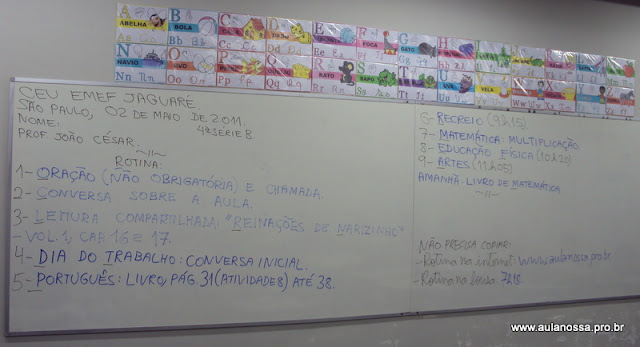 A
ABELHA
Aa
B
BOLA
Bb
C
Cc
D
Dd
E
Ee
F
FOCA
G
GATO
Gg
H
N
NAVIO
Nn
O
OVO
Oo
P
Pp
Q
Qq
R
RATO
Rr
S
SAPO
Ss
T
Tt
U
UVA
V
VELA
W
Ww
X
Y
Z
CEU EMEF JAGUARÉ.
SÃO PAULO, 02 DE MAIO DE 2.011.
NOME: 4ª SÉRIE B
PROF. JOÃO CÉSAR.
-//-
ROTINA:
1- ORAÇÃO (NÃO OBRIGATÓRIA) E CHAMADA.
2- CONVERSA SOBRE A AULA.
3- LEITURA COMPARTILHADA: "REINAÇÕES DE NARIZINHO"
- VOL. 1, CAP. 16 E 17.
4- DIA DO TRABALHO: CONVERSA INICIAL.
5- PORTUGUÊS: LIVRO, PÁG. 31 (ATIVIDADE 8) ATÉ 38.
6- RECREIO (9h15).
7- MATEMÁTICA: MULTIPLICAÇÃO.
8- EDUCAÇÃO FÍSICA (10h20)
9- ARTES (11h05)
AMANHÃ: LIVRO DE MATEMÁTICA
-//-
NÃO PRECISA COPIAR:
- Rotina na internet: www.aulanossa.pro.br
- Rotina na lousa: 7h18.
www.aulanossa.pro.br